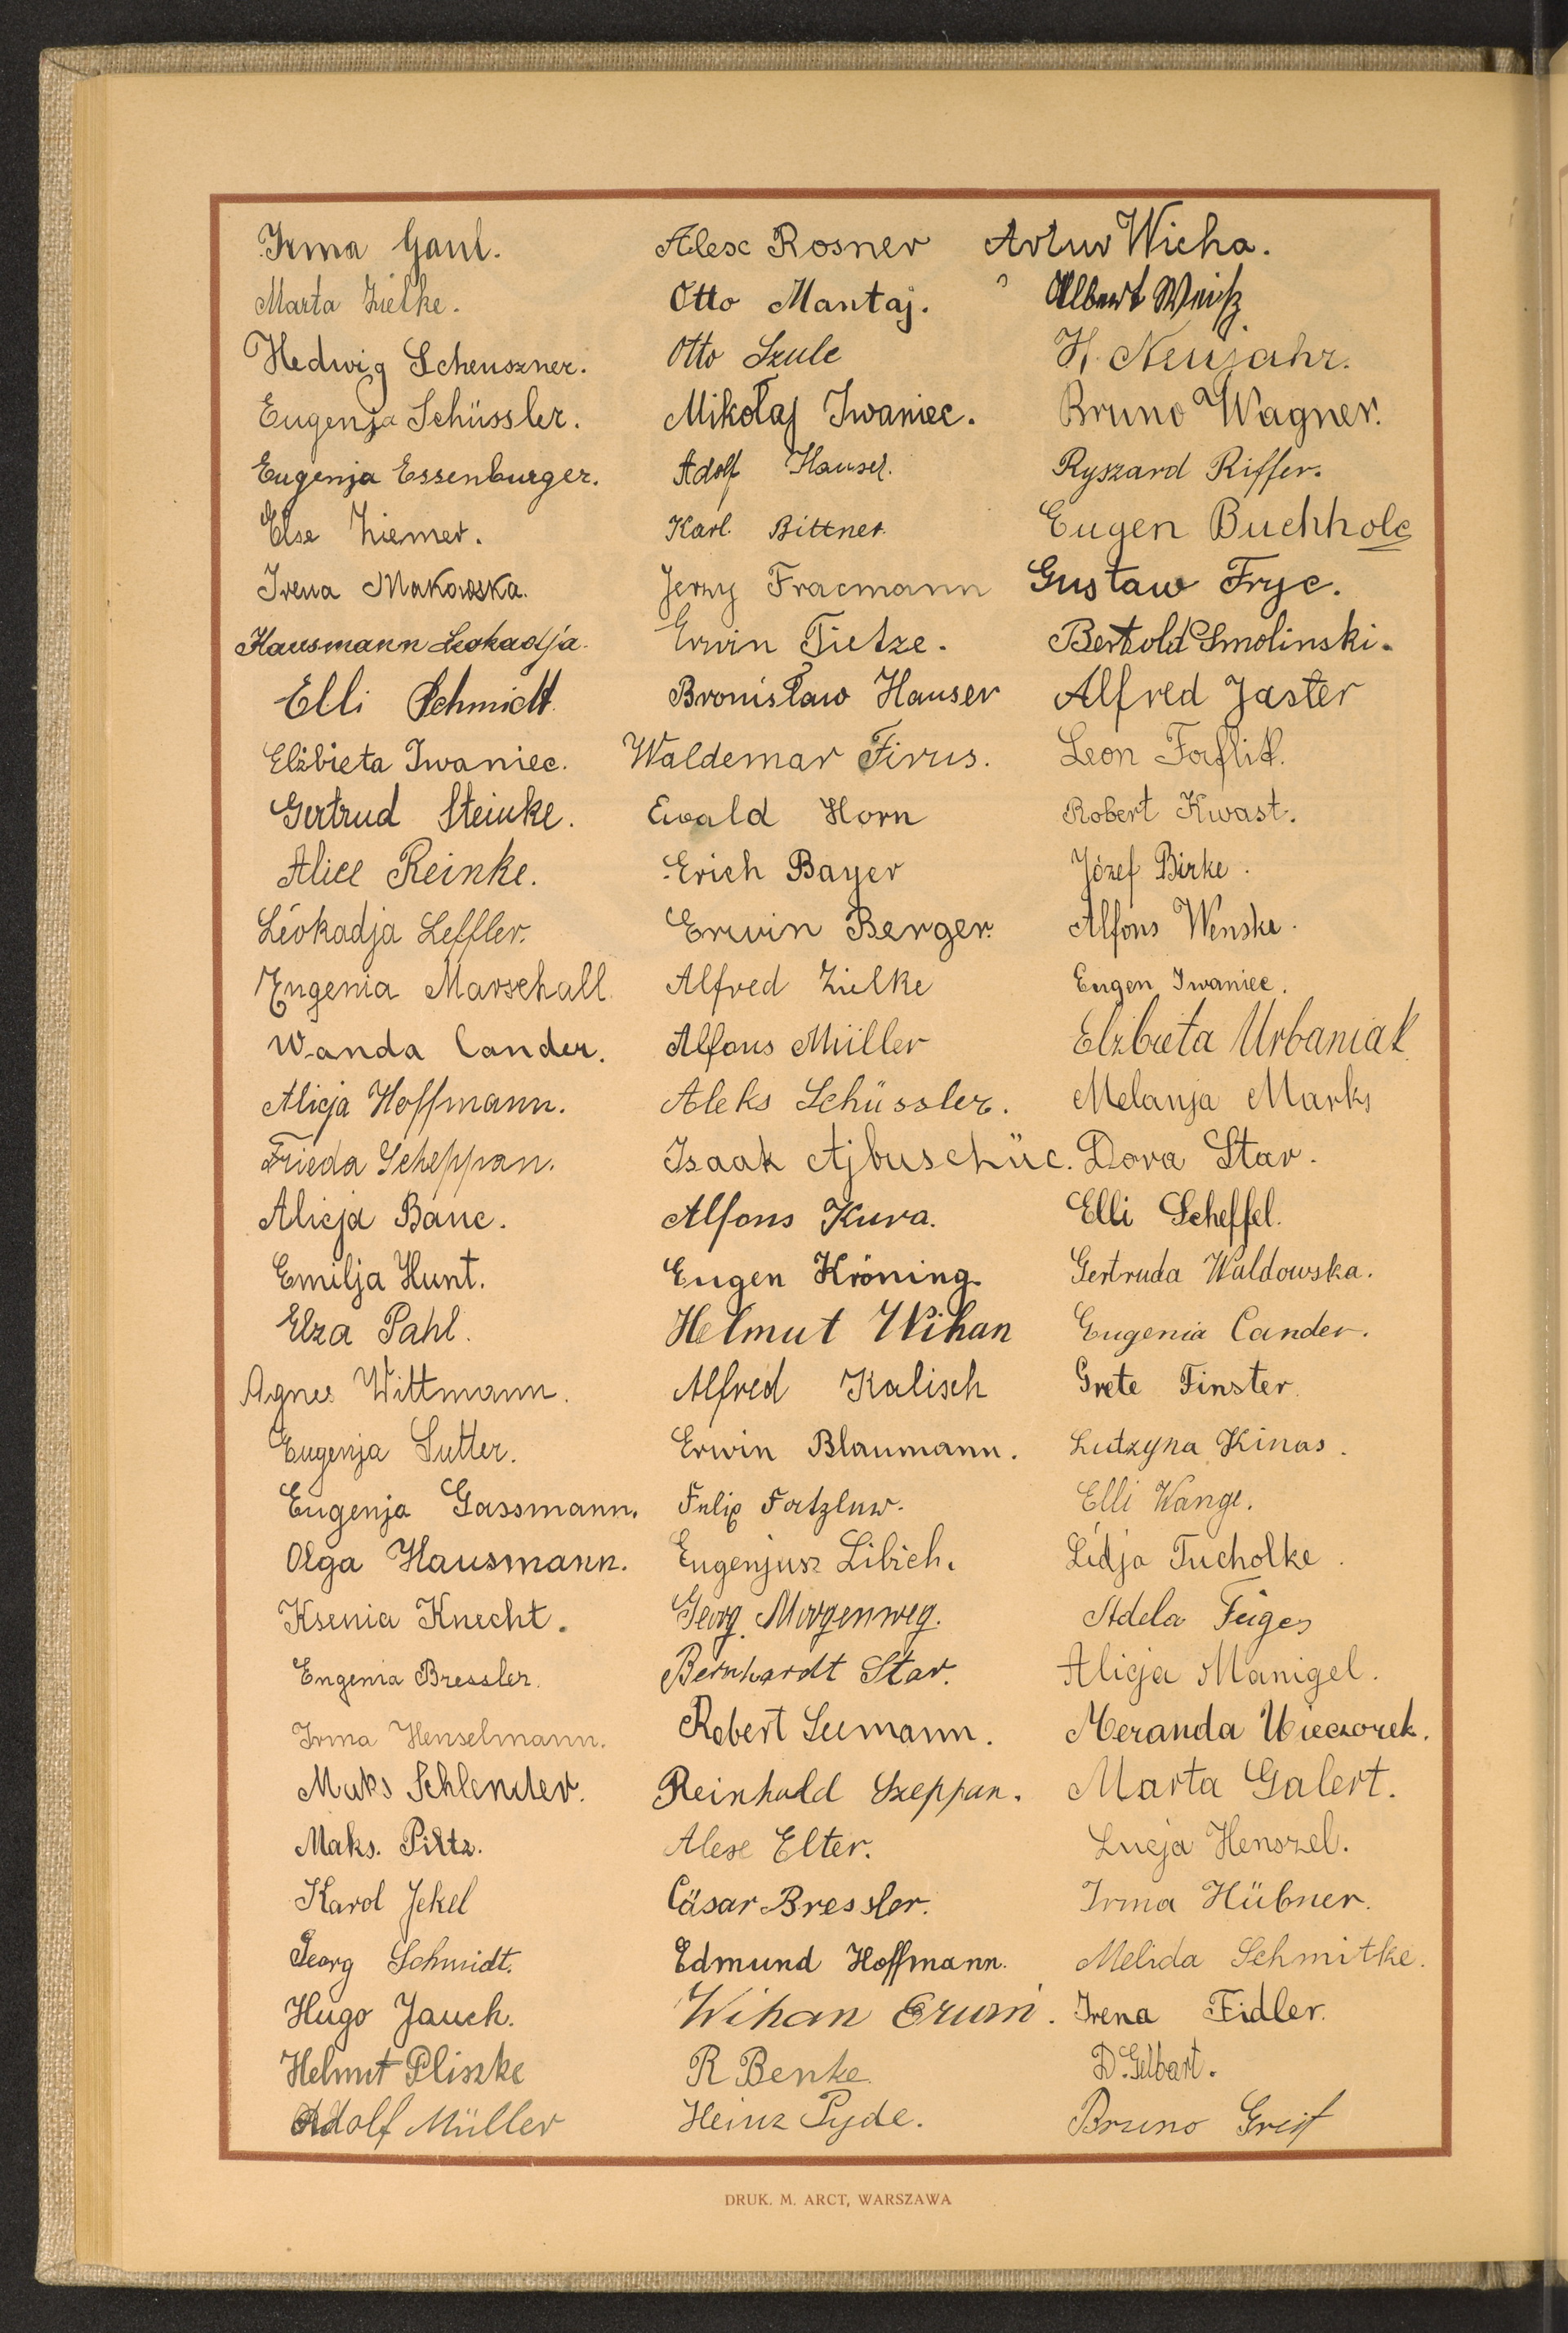 Irma Gaul.
Marta Zielke.
Hedwig Scheuszner.
Eugenja Schüssler.
Eugenja Essenburger.
Else Ziemer.
Irena Makowska.
Hausmann Leokadja.
Elli Schmidt.
Elżbieta Iwaniec.
Gertrud Steinke.
Alice Reinke.
Leokadja Leffler.
Eugenia Marschall.
Wanda Cander.
Alicja Hoffmann.
Frieda Scheppan.
Alicja Banc.
Emilja Hunt.
Elza Pahl.
Agnes Wittmann.
Eugenja Sutter.
Eugenja Gassmann.
Olga Hausmann.
Ksenia Knecht.
Eugenia Bressler.
Irma Henselmann.
Maks Schlender.
Maks. Piltz.
Karol Jekel
Georg Schmidt.
Hugo Jauch.
Helmut Pliszke
Adolf Müller
Alex Rosner
Otto Mantaj.
Otto Szulc
Mikołaj Iwaniec.
Adolf Hauser.
Karl Bittner.
Jerzy Fracmann
Erwin Tietze.
Bronisław Hauser
Waldemar Firus.
Ewald Horn
Erich Bayer
Erwin Berger.
Alfred Zielke
Alfons Müller
Aleks Schüssler.
Isaak Ajbuschüc.
Alfons Kura.
Eugen Kröning.
Helmut Wihan
Alfred Kalisch
Erwin Blaumann.
Eugenjusz Libich.
Georg Morgenweg.
Bernhardt Star.
Robert Seemann.
Reinhold Szeppan.
Alex Elter.
Cäsar Bressler.
Edmund Hoffmann.
Wihan Erwin.
R Benke.
Heinz Pyde.
Artur Wicha.
Albert Weiß
H. Neujahr.
Bruno Wagner.
Ryszard Riffer.
Eugen Buchholc
Gustaw Fryc.
Bertold Smolinski.
Alfred Jaster
Leon Foflik.
Robert Kwast.
Józef Birke.
Alfons Wenske.
Eugen Iwaniec.
Elżbieta Urbaniak.
Melanja Marks
Dora Star.
Elli Scheffel.
Gertruda Waldowska.
Eugenia Cander.
Grete Finster.
Lutzyna Kinas.
Elli Wange.
Lidja Tucholke.
Adela Füges
Alicja Manigel.
Meranda Wieczorek.
Marta Galert.
Lucja Henszel.
Irma Hübner.
Melida Schmitke.
Irena Fidler.
D. Gelbart.
Bruno Greif
DRUK. M. ARCT, WARSZAWA